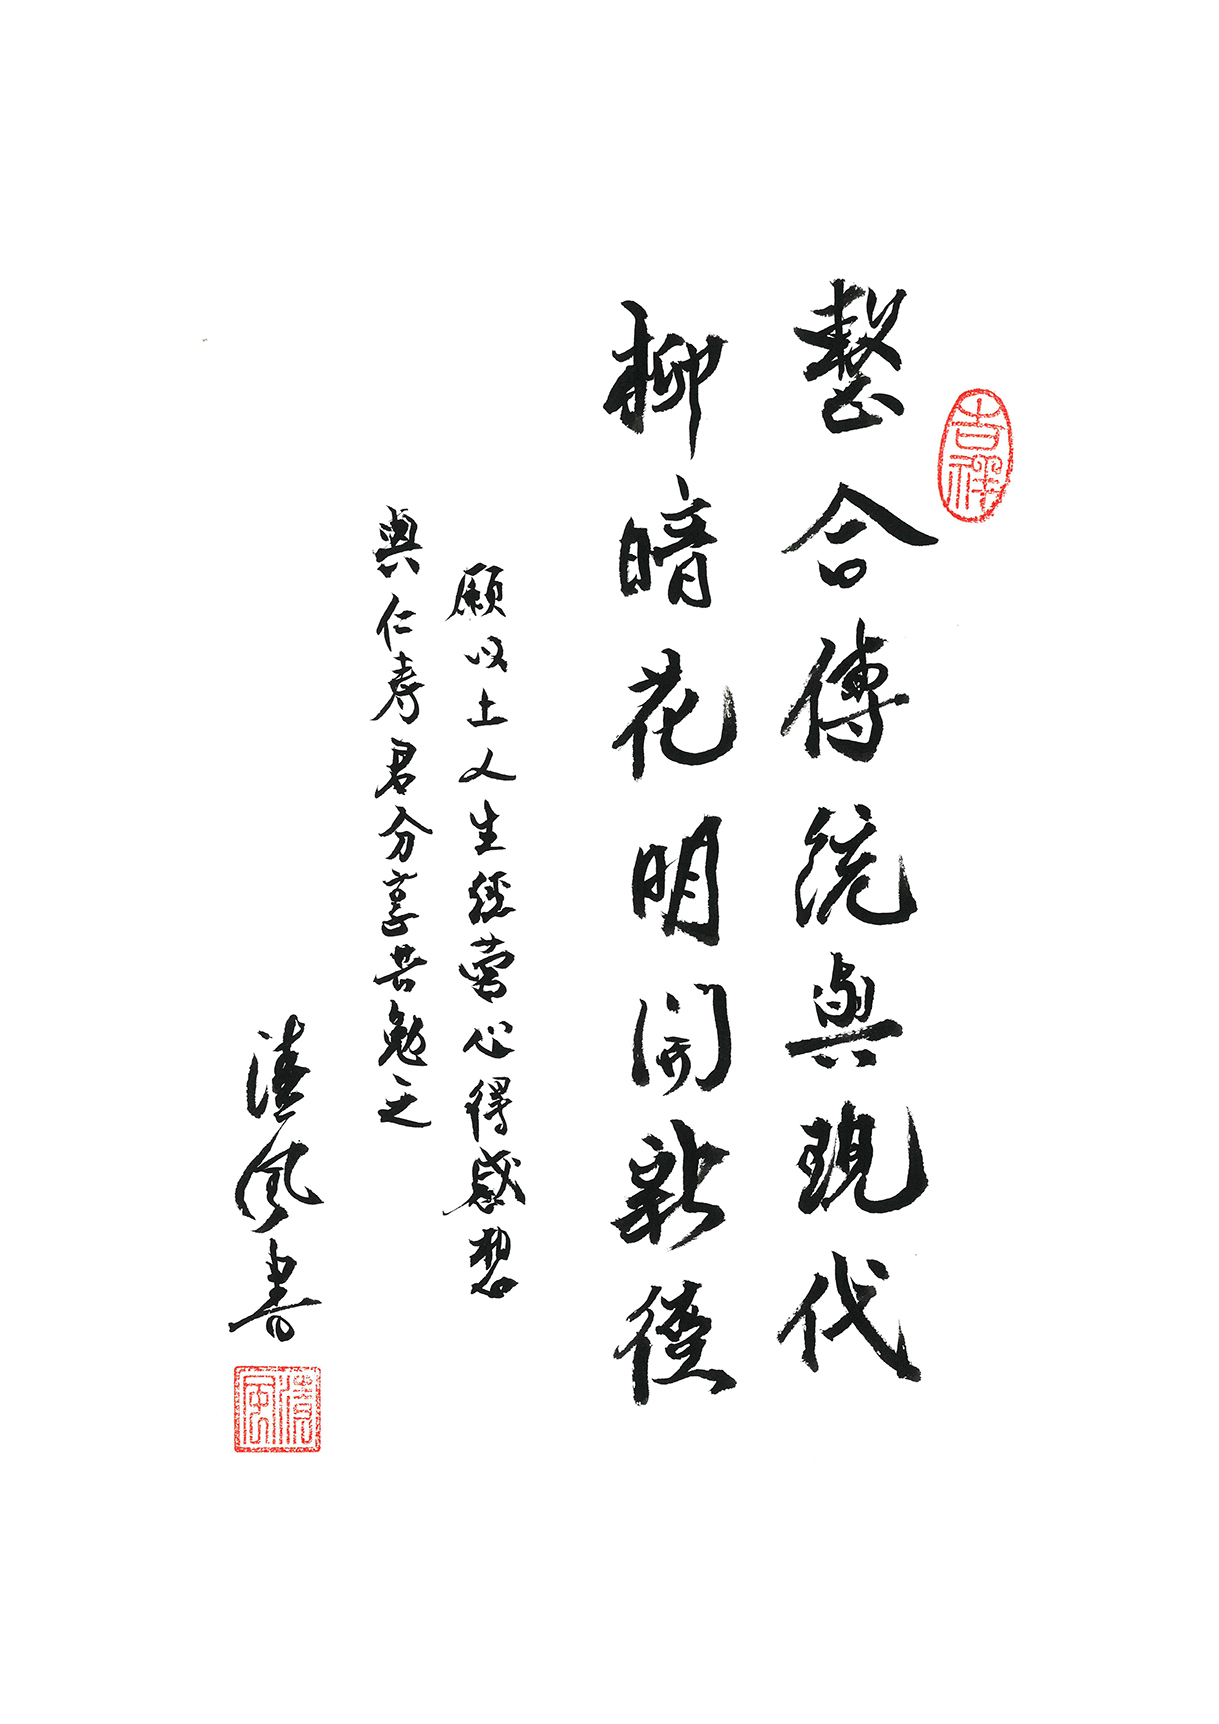 吉祥
整合傳統與現代
柳暗花明開新徑
願以上人生經營心得感想
與仁壽君分享共勉之
清風書
清風